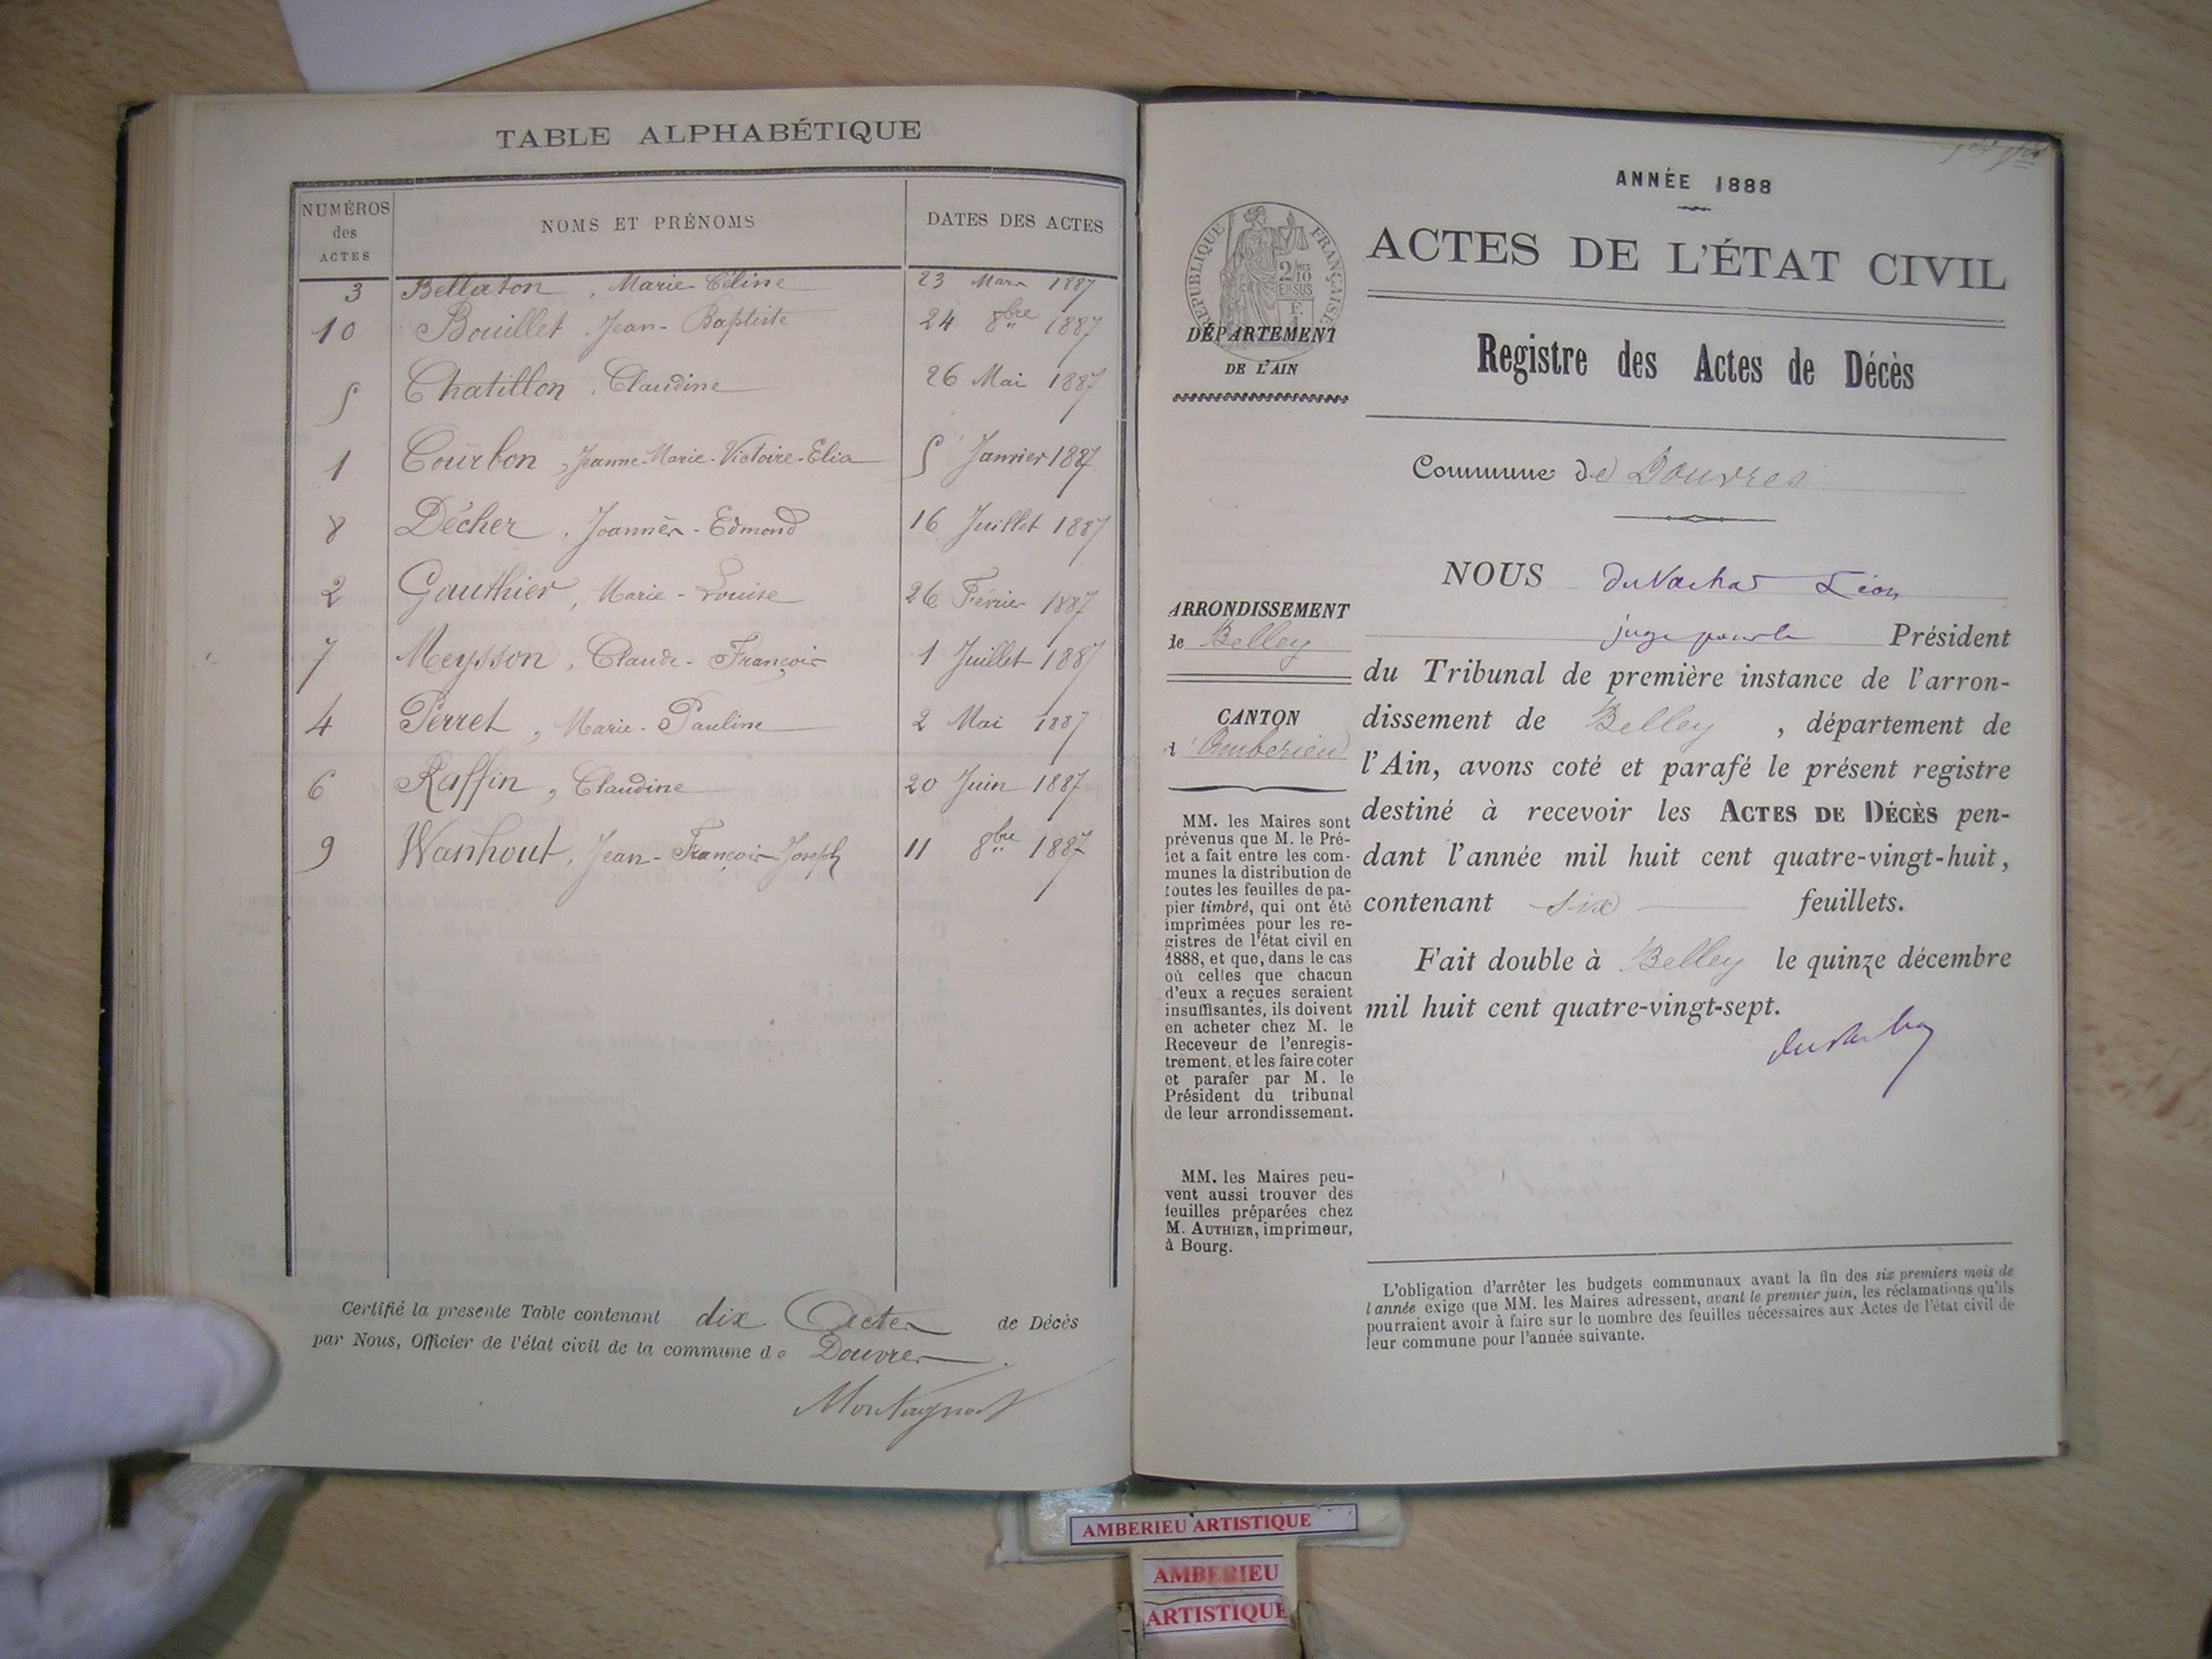 TABLE ALPHABÉTIQUE
NUMÉROS des ACTES NOMS ET PRÉNOMS DATES DES ACTES
3 Bellaton, Marie Céline 23 Mars 1887
10 Bouillet, Jean-Baptiste 24 8bre 1887
5 Chatillon, Claudine 26 Mai 1887
1 Courbon, Jeanne-Marie-Victoire-Elia 5 Janvier 1887
8 Décher, Joannès-Edmond 16 Juillet 1887
2 Gauthier, Marie-Louise 26 Février 1887
7 Meysson, Claude-François 1 Juillet 1887
4 Perret, Marie-Pauline 2 Mai 1887
6 Raffin, Claudine 20 Juin 1887
9 Wanhout, Jean-François-Joseph 11 8bre 1887
Certifié la presente Table contenant dix Actes de Décès
par Nous, Officier de l'état civil de la commune de Douvres.
ANNÉE 1888
ACTES DE L'ÉTAT CIVIL
Registre des Actes de Décès
Commune de Douvres
RÉPUBLIQUE FRANÇAISE
2/10 EN SUS
DÉPARTEMENT
DE L'AIN
ARRONDISSEMENT
de Belley
CANTON
d'Amberieu
MM. les Maires sont
prévenus que M. le Pré-
fet a fait entre les com-
munes la distribution de
toutes les feuilles de pa-
pier timbré, qui ont été
imprimées pour les re-
gistres de l'état civil en
1888, et que, dans le cas
où celles que chacun
d'eux a reçues seraient
insuffisantes, ils doivent
en acheter chez M. le
Receveur de l'enregis-
trement, et les faire coter
et parafer par M. le
Président du tribunal
de leur arrondissement.
MM. les Maires peu-
vent aussi trouver des
feuilles préparées chez
M. AUTHIER, imprimeur,
à Bourg.
NOUS Duvachat Léon
juge pour le Président
du Tribunal de première instance de l'arron-
dissement de Belley, département de
l'Ain, avons coté et parafé le présent registre
destiné à recevoir les ACTES DE DÉCÈS pen-
dant l'année mil huit cent quatre-vingt-huit,
contenant six feuillets.
Fait double à Belley le quinze décembre
mil huit cent quatre-vingt-sept.
L'obligation d'arrêter les budgets communaux avant la fin des six premiers mois de
l'année exige que MM. les Maires adressent, avant le premier juin, les réclamations qu'ils
pourraient avoir à faire sur le nombre des feuilles nécessaires aux Actes de l'état civil de
leur commune pour l'année suivante.
AMBERIEU ARTISTIQUE
AMBERIEU
ARTISTIQUE